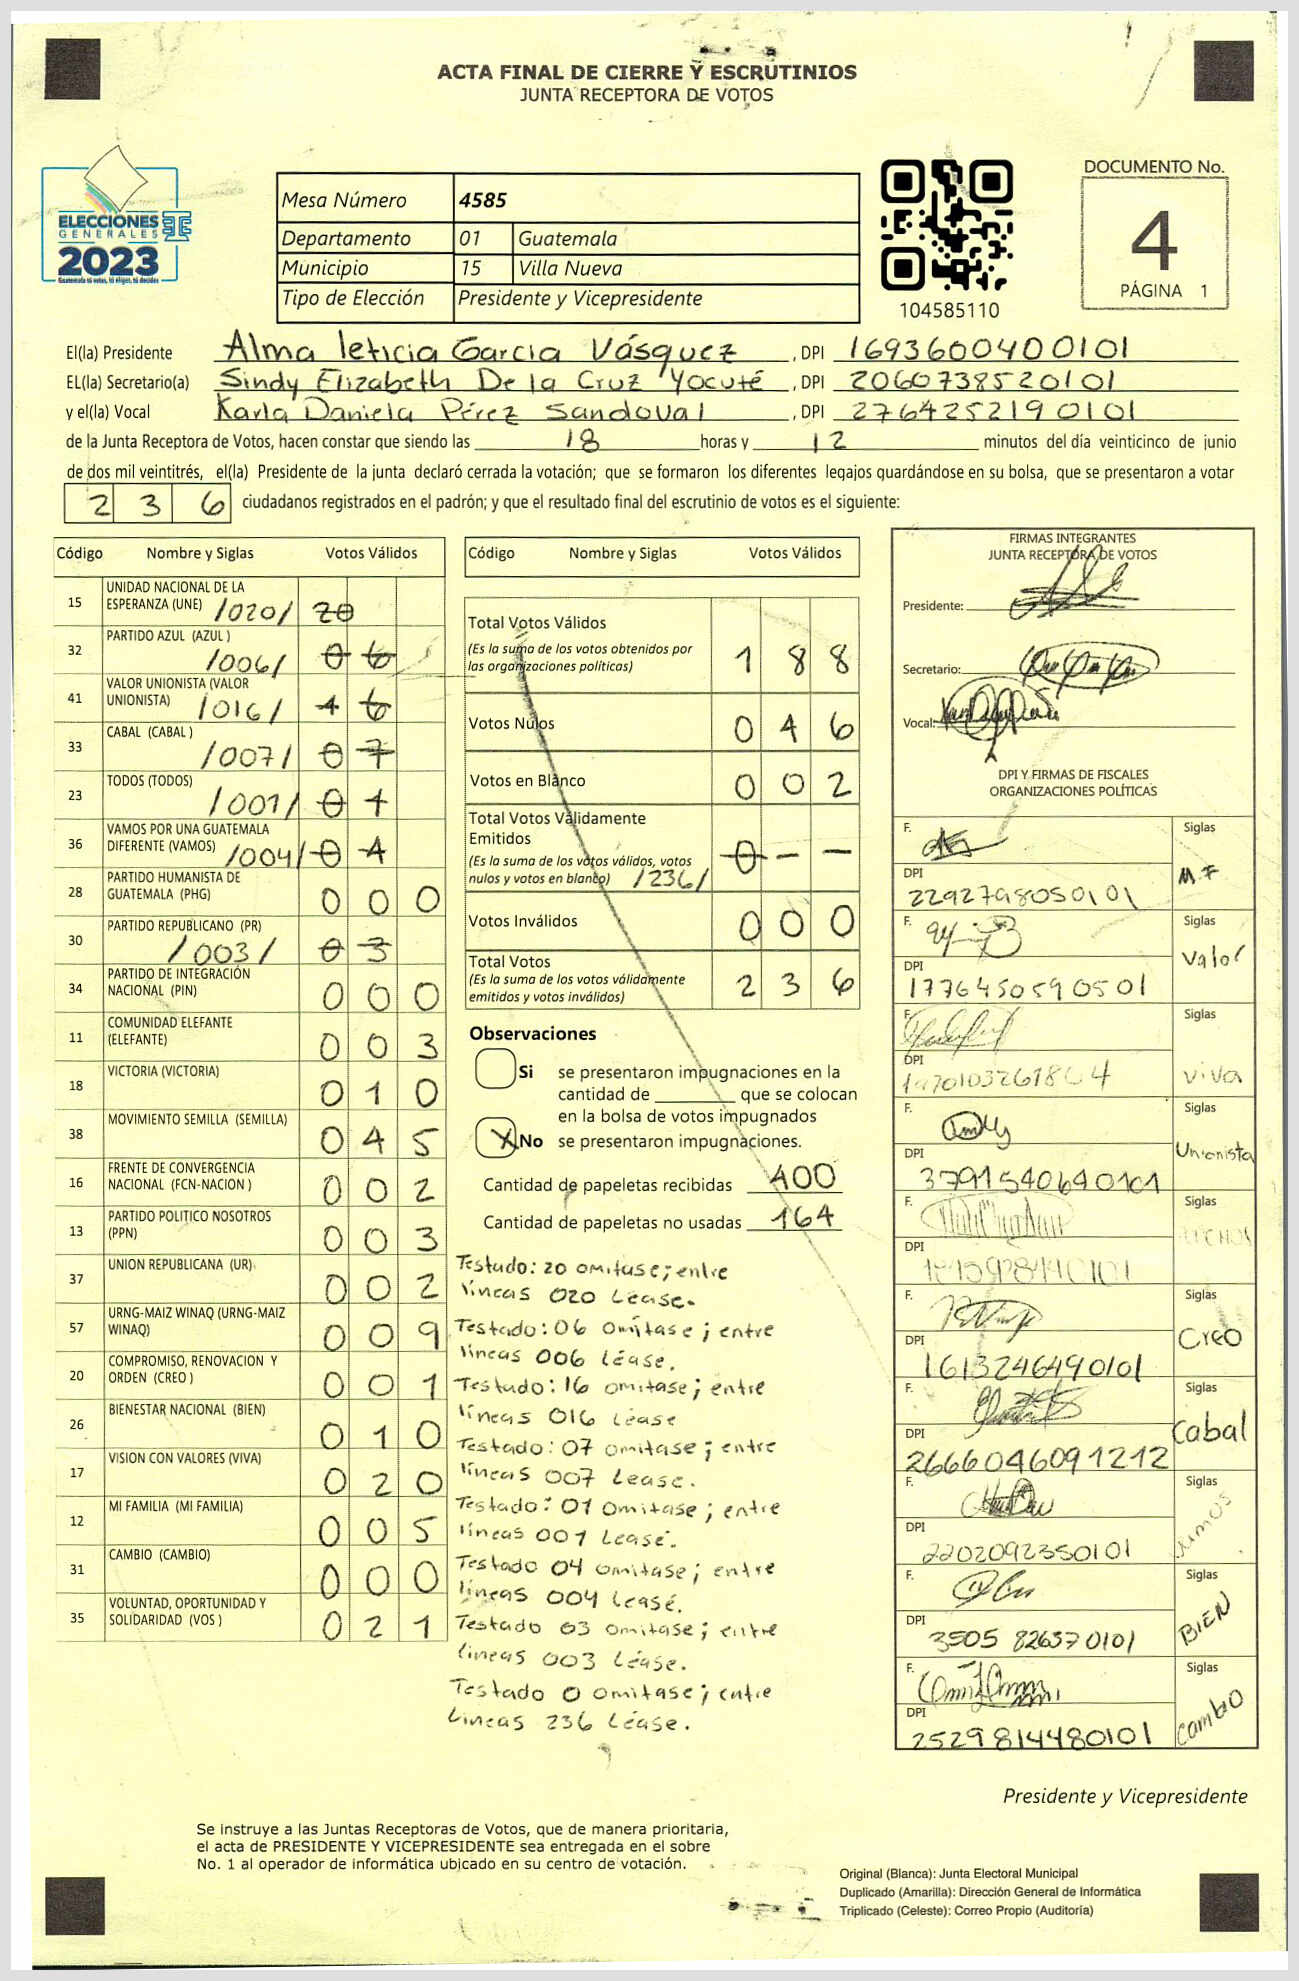 ACTA FINAL DE CIERRE Y ESCRUTINIOS
JUNTA RECEPTORA DE VOTOS
ELECCIONES
GENERALES
2023
Guatemala tú votas, tú eliges, tú decides
Mesa Número 4585
Departamento 01 Guatemala
Municipio 15 Villa Nueva
Tipo de Elección Presidente y Vicepresidente
104585110
DOCUMENTO No.
4
PÁGINA 1
El(la) Presidente Alma leticia Garcia Vásquez, DPI 1693600400101
EL(la) Secretario(a) Sindy Elizabeth De la Cruz Yocuté, DPI 2060738520101
y el(la) Vocal Karla Daniela Pérez Sandoval, DPI 2764252190101
de la Junta Receptora de Votos, hacen constar que siendo las 18 horas y 12 minutos del día veinticinco de junio
de dos mil veintitrés, el(la) Presidente de la junta declaró cerrada la votación; que se formaron los diferentes legajos quardándose en su bolsa, que se presentaron a votar
2 3 6 ciudadanos registrados en el padrón; y que el resultado final del escrutinio de votos es el siguiente:
Código Nombre y Siglas Votos Válidos
15 UNIDAD NACIONAL DE LA
ESPERANZA (UNE) /020/ 20
32 PARTIDO AZUL (AZUL )
/006/ 0 6
41 VALOR UNIONISTA (VALOR
UNIONISTA) /016/ 1 6
33 CABAL (CABAL )
/007/ 0 7
23 TODOS (TODOS)
/001/ 0 1
36 VAMOS POR UNA GUATEMALA
DIFERENTE (VAMOS) /004/ 0 4
28 PARTIDO HUMANISTA DE
GUATEMALA (PHG) 0 0 0
30 PARTIDO REPUBLICANO (PR)
/003/ 0 3
34 PARTIDO DE INTEGRACIÓN
NACIONAL (PIN) 0 0 0
11 COMUNIDAD ELEFANTE
(ELEFANTE) 0 0 3
18 VICTORIA (VICTORIA) 0 1 0
38 MOVIMIENTO SEMILLA (SEMILLA) 0 4 5
16 FRENTE DE CONVERGENCIA
NACIONAL (FCN-NACION ) 0 0 2
13 PARTIDO POLITICO NOSOTROS
(PPN) 0 0 3
37 UNION REPUBLICANA (UR) 0 0 2
57 URNG-MAIZ WINAQ (URNG-MAIZ
WINAQ) 0 0 9
20 COMPROMISO, RENOVACION Y
ORDEN (CREO ) 0 0 1
26 BIENESTAR NACIONAL (BIEN) 0 1 0
17 VISION CON VALORES (VIVA) 0 2 0
12 MI FAMILIA (MI FAMILIA) 0 0 5
31 CAMBIO (CAMBIO) 0 0 0
35 VOLUNTAD, OPORTUNIDAD Y
SOLIDARIDAD (VOS ) 0 2 1
Código Nombre y Siglas Votos Válidos
Total Votos Válidos
(Es la suma de los votos obtenidos por
las organizaciones políticas) 1 8 8
Votos Nulos 0 4 6
Votos en Blanco 0 0 2
Total Votos Válidamente
Emitidos
(Es la suma de los votos válidos, votos
nulos y votos en blanco) /236/ 0 – –
Votos Inválidos 0 0 0
Total Votos
(Es la suma de los votos válidamente
emitidos y votos inválidos) 2 3 6
Observaciones
Si se presentaron impugnaciones en la
cantidad de ________ que se colocan
en la bolsa de votos impugnados
X No se presentaron impugnaciones.
Cantidad de papeletas recibidas 400
Cantidad de papeletas no usadas 164
Testado: 20 omitase; entre
líneas 020 Léase.
Testado: 06 omítase; entre
líneas 006 Léase.
Testado: 16 omitase; entre
líneas 016 Léase
Testado: 07 omitase; entre
líneas 007 Lease.
Testado: 01 omitase; entre
líneas 001 Leasé.
Testado 04 omitase; entre
líneas 004 Leasé.
Testado 03 omitase; entre
lineas 003 Léase.
Testado 0 omitase; entre
Líneas 236 Léase.
FIRMAS INTEGRANTES
JUNTA RECEPTORA DE VOTOS
Presidente:
Secretario:
Vocal:
DPI Y FIRMAS DE FISCALES
ORGANIZACIONES POLÍTICAS
F. Siglas
DPI M.F
2292798050101
F. Siglas
DPI Valor
1776450590501
F. Siglas
DPI viva
F. Siglas
DPI Unionista
3791540640101
F. Siglas
DPI
F. Siglas
DPI Creo
1613246490101
F. Siglas
DPI Cabal
2666046091212
F. Siglas
DPI
2202092350101
F. Siglas
DPI BIEN
3505 826370101
F. Siglas
DPI cambio
2529814480101
Presidente y Vicepresidente
Se instruye a las Juntas Receptoras de Votos, que de manera prioritaria,
el acta de PRESIDENTE Y VICEPRESIDENTE sea entregada en el sobre
No. 1 al operador de informática ubicado en su centro de votación.
Original (Blanca): Junta Electoral Municipal
Duplicado (Amarilla): Dirección General de Informática
Triplicado (Celeste): Correo Propio (Auditoría)